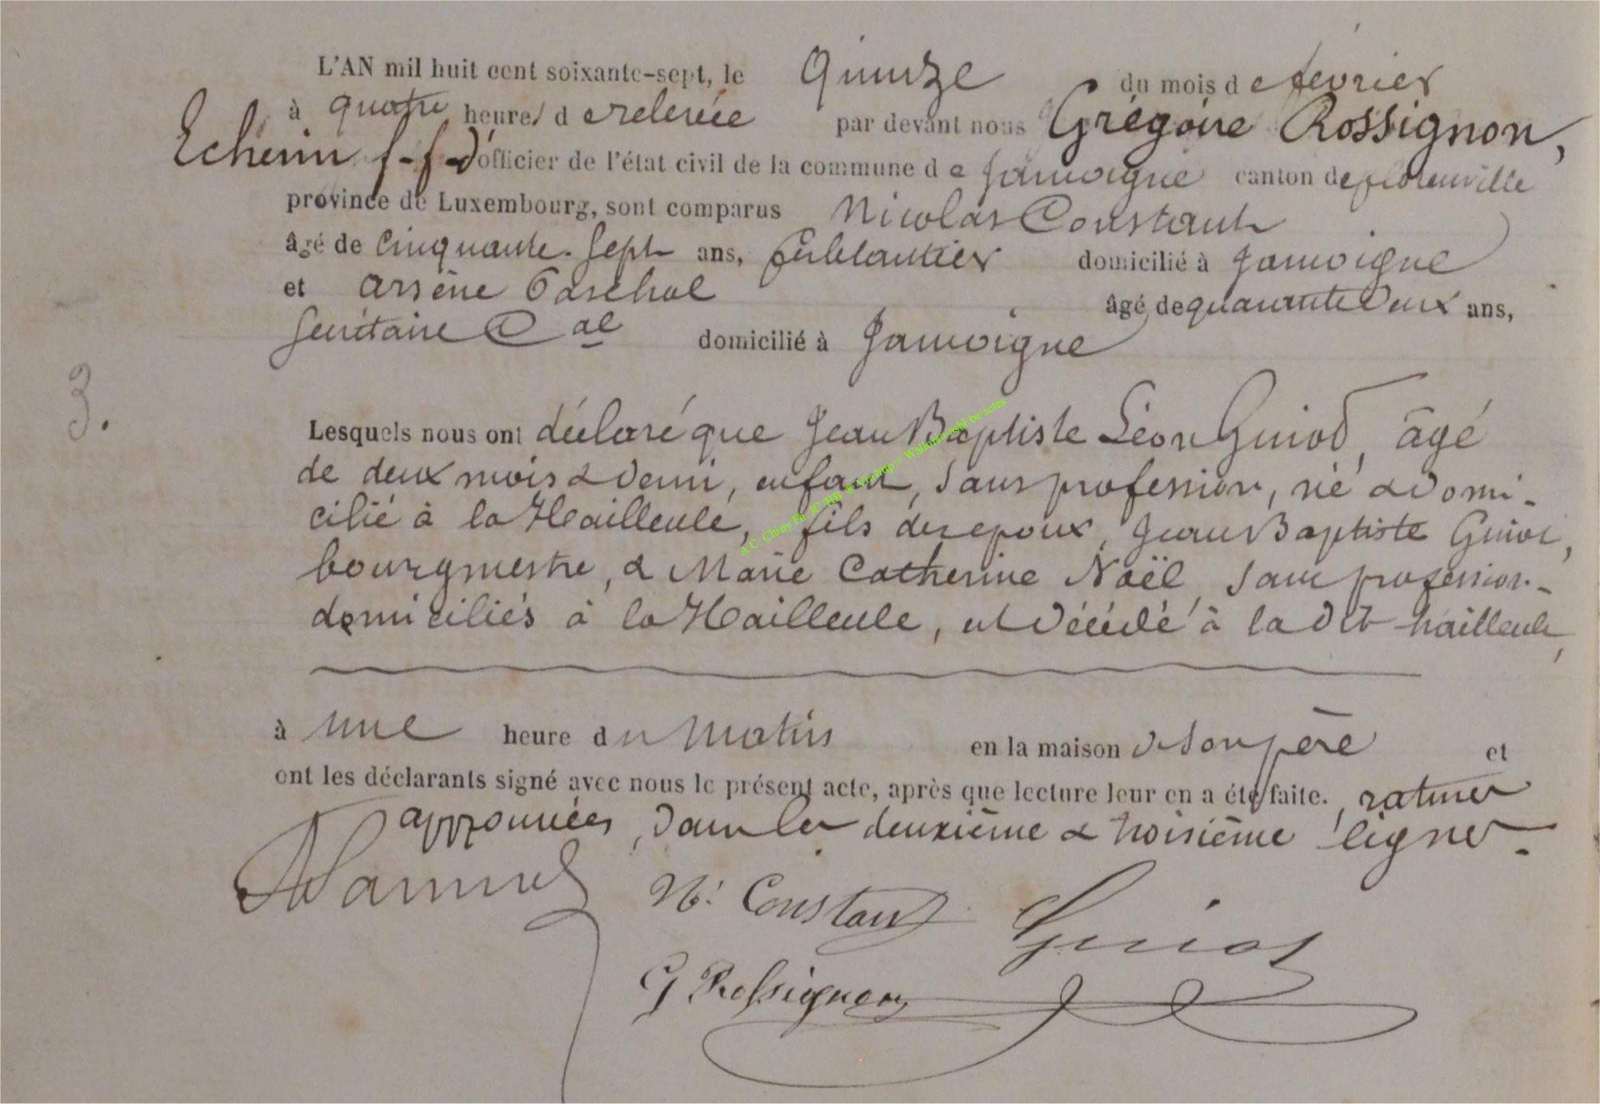 L'AN mil huit cent soixante-sept, le Quinze du mois de février
à quatre heures de relevée par devant nous Grégoire Rossignon,
Echevin f-f-d'officier de l'état civil de la commune de Jamoigne canton de florenville
province de Luxembourg, sont comparus Nicolas Constant
âgé de Cinquante-Sept ans, ferblantier domicilié à Jamoigne
et Arsène Paschal âgé de quarante deux ans,
Secrétaire Cal domicilié à Jamoigne
3.
Lesquels nous ont déclaré que Jean Baptiste Léon Guiot, âgé
de deux mois & demi, enfant, sans profession, né & domi-
cilié à la Hailleule, fils des epoux, Jean Baptiste Guiot,
bourgmestre, & Marie Catherine Noël, sans profession-
domiciliés à la Hailleule, est décédé à la dite hailleule,
à une heure du matin en la maison de son père et
ont les déclarants signé avec nous le présent acte, après que lecture leur en a été faite., ratures
approuvées, dans les deuxième & troisième lignes.
N: Constant Guiot
G Rossignon